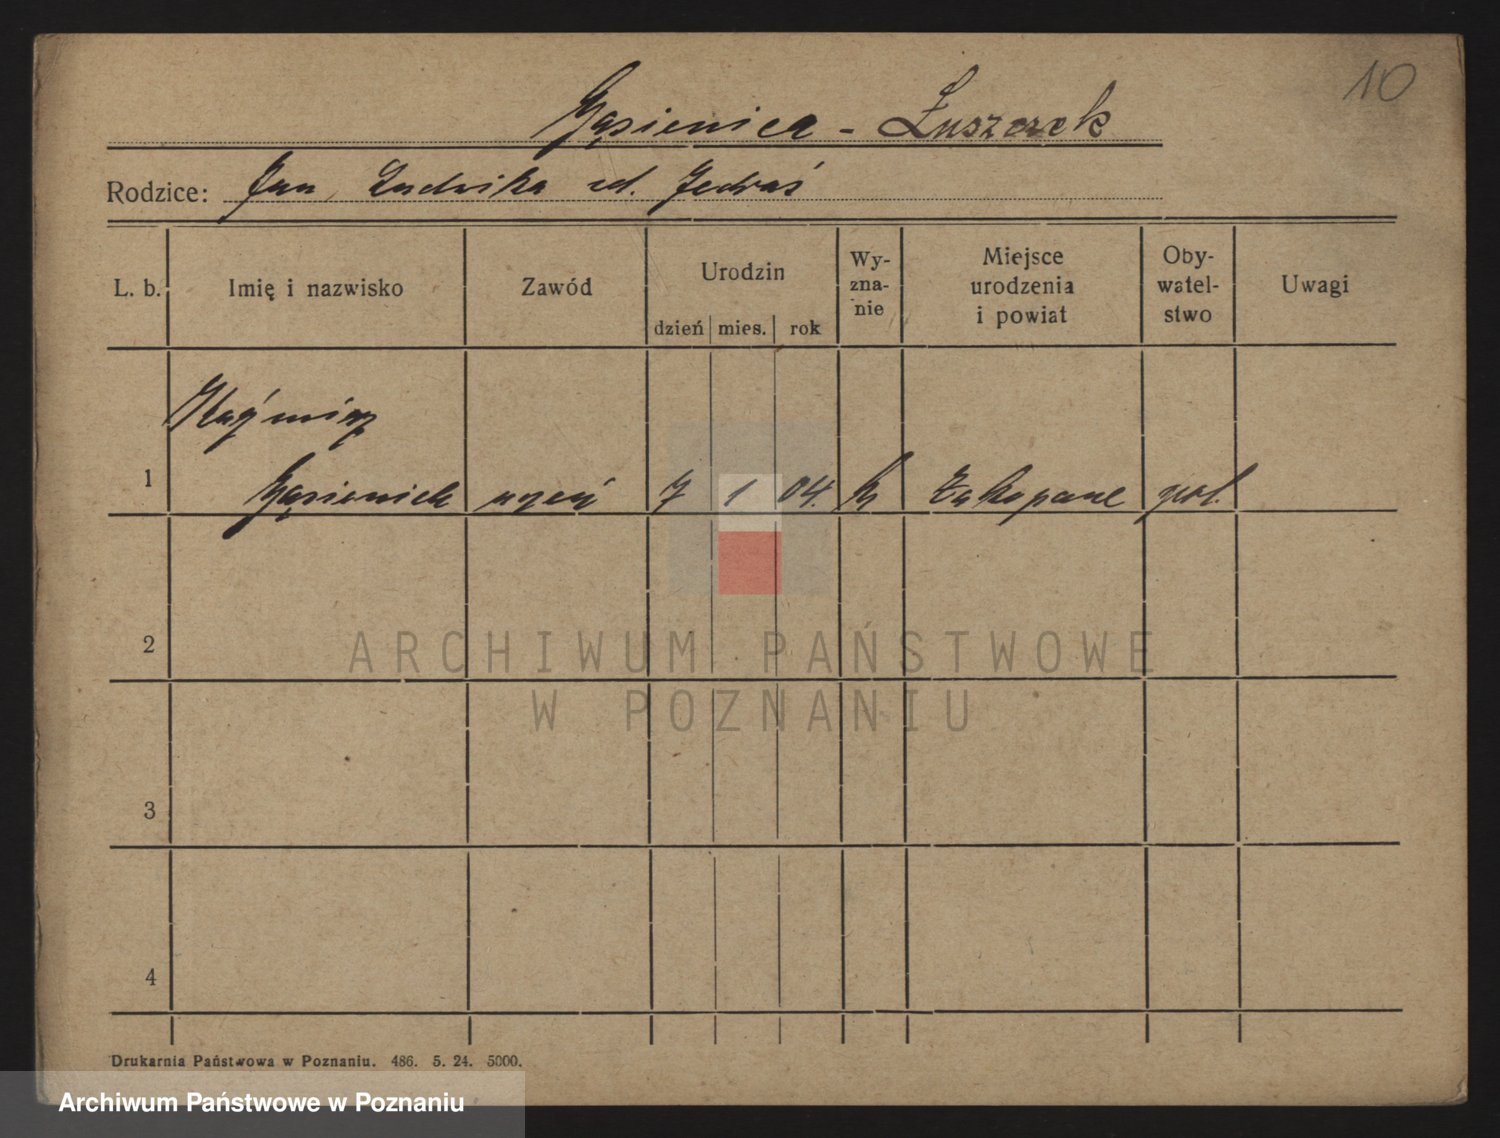 10
Gąsienica - Łuszczek
Rodzice: Jan, Ludwika zd. Jedraś
L. b. Imię i nazwisko Zawód Urodzin dzień mies. rok Wy-zna-nie Miejsce urodzenia i powiat Oby-watel-stwo Uwagi
Kaźmirz
1 Gąsienica uczeń 7 1 04. k Zakopane pol.
2
3
4
Drukarnia Państwowa w Poznaniu. 486. 5. 24. 5000.
ARCHIWUM PAŃSTWOWE
W POZNANIU
Archiwum Państwowe w Poznaniu